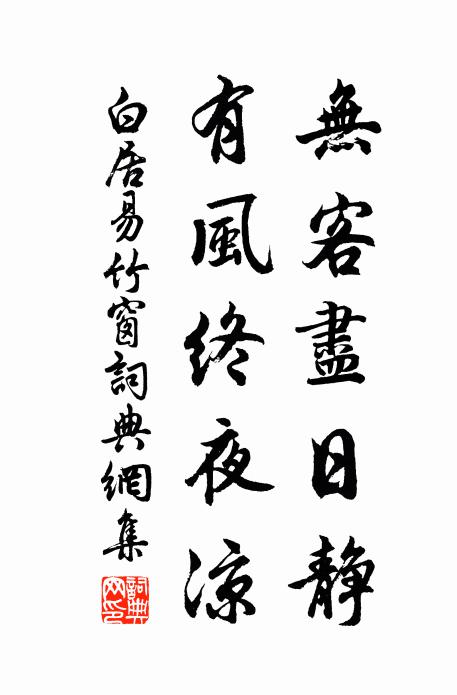 無客盡日靜
有風終夜涼
白居易竹窗詞典網集
詞典網印